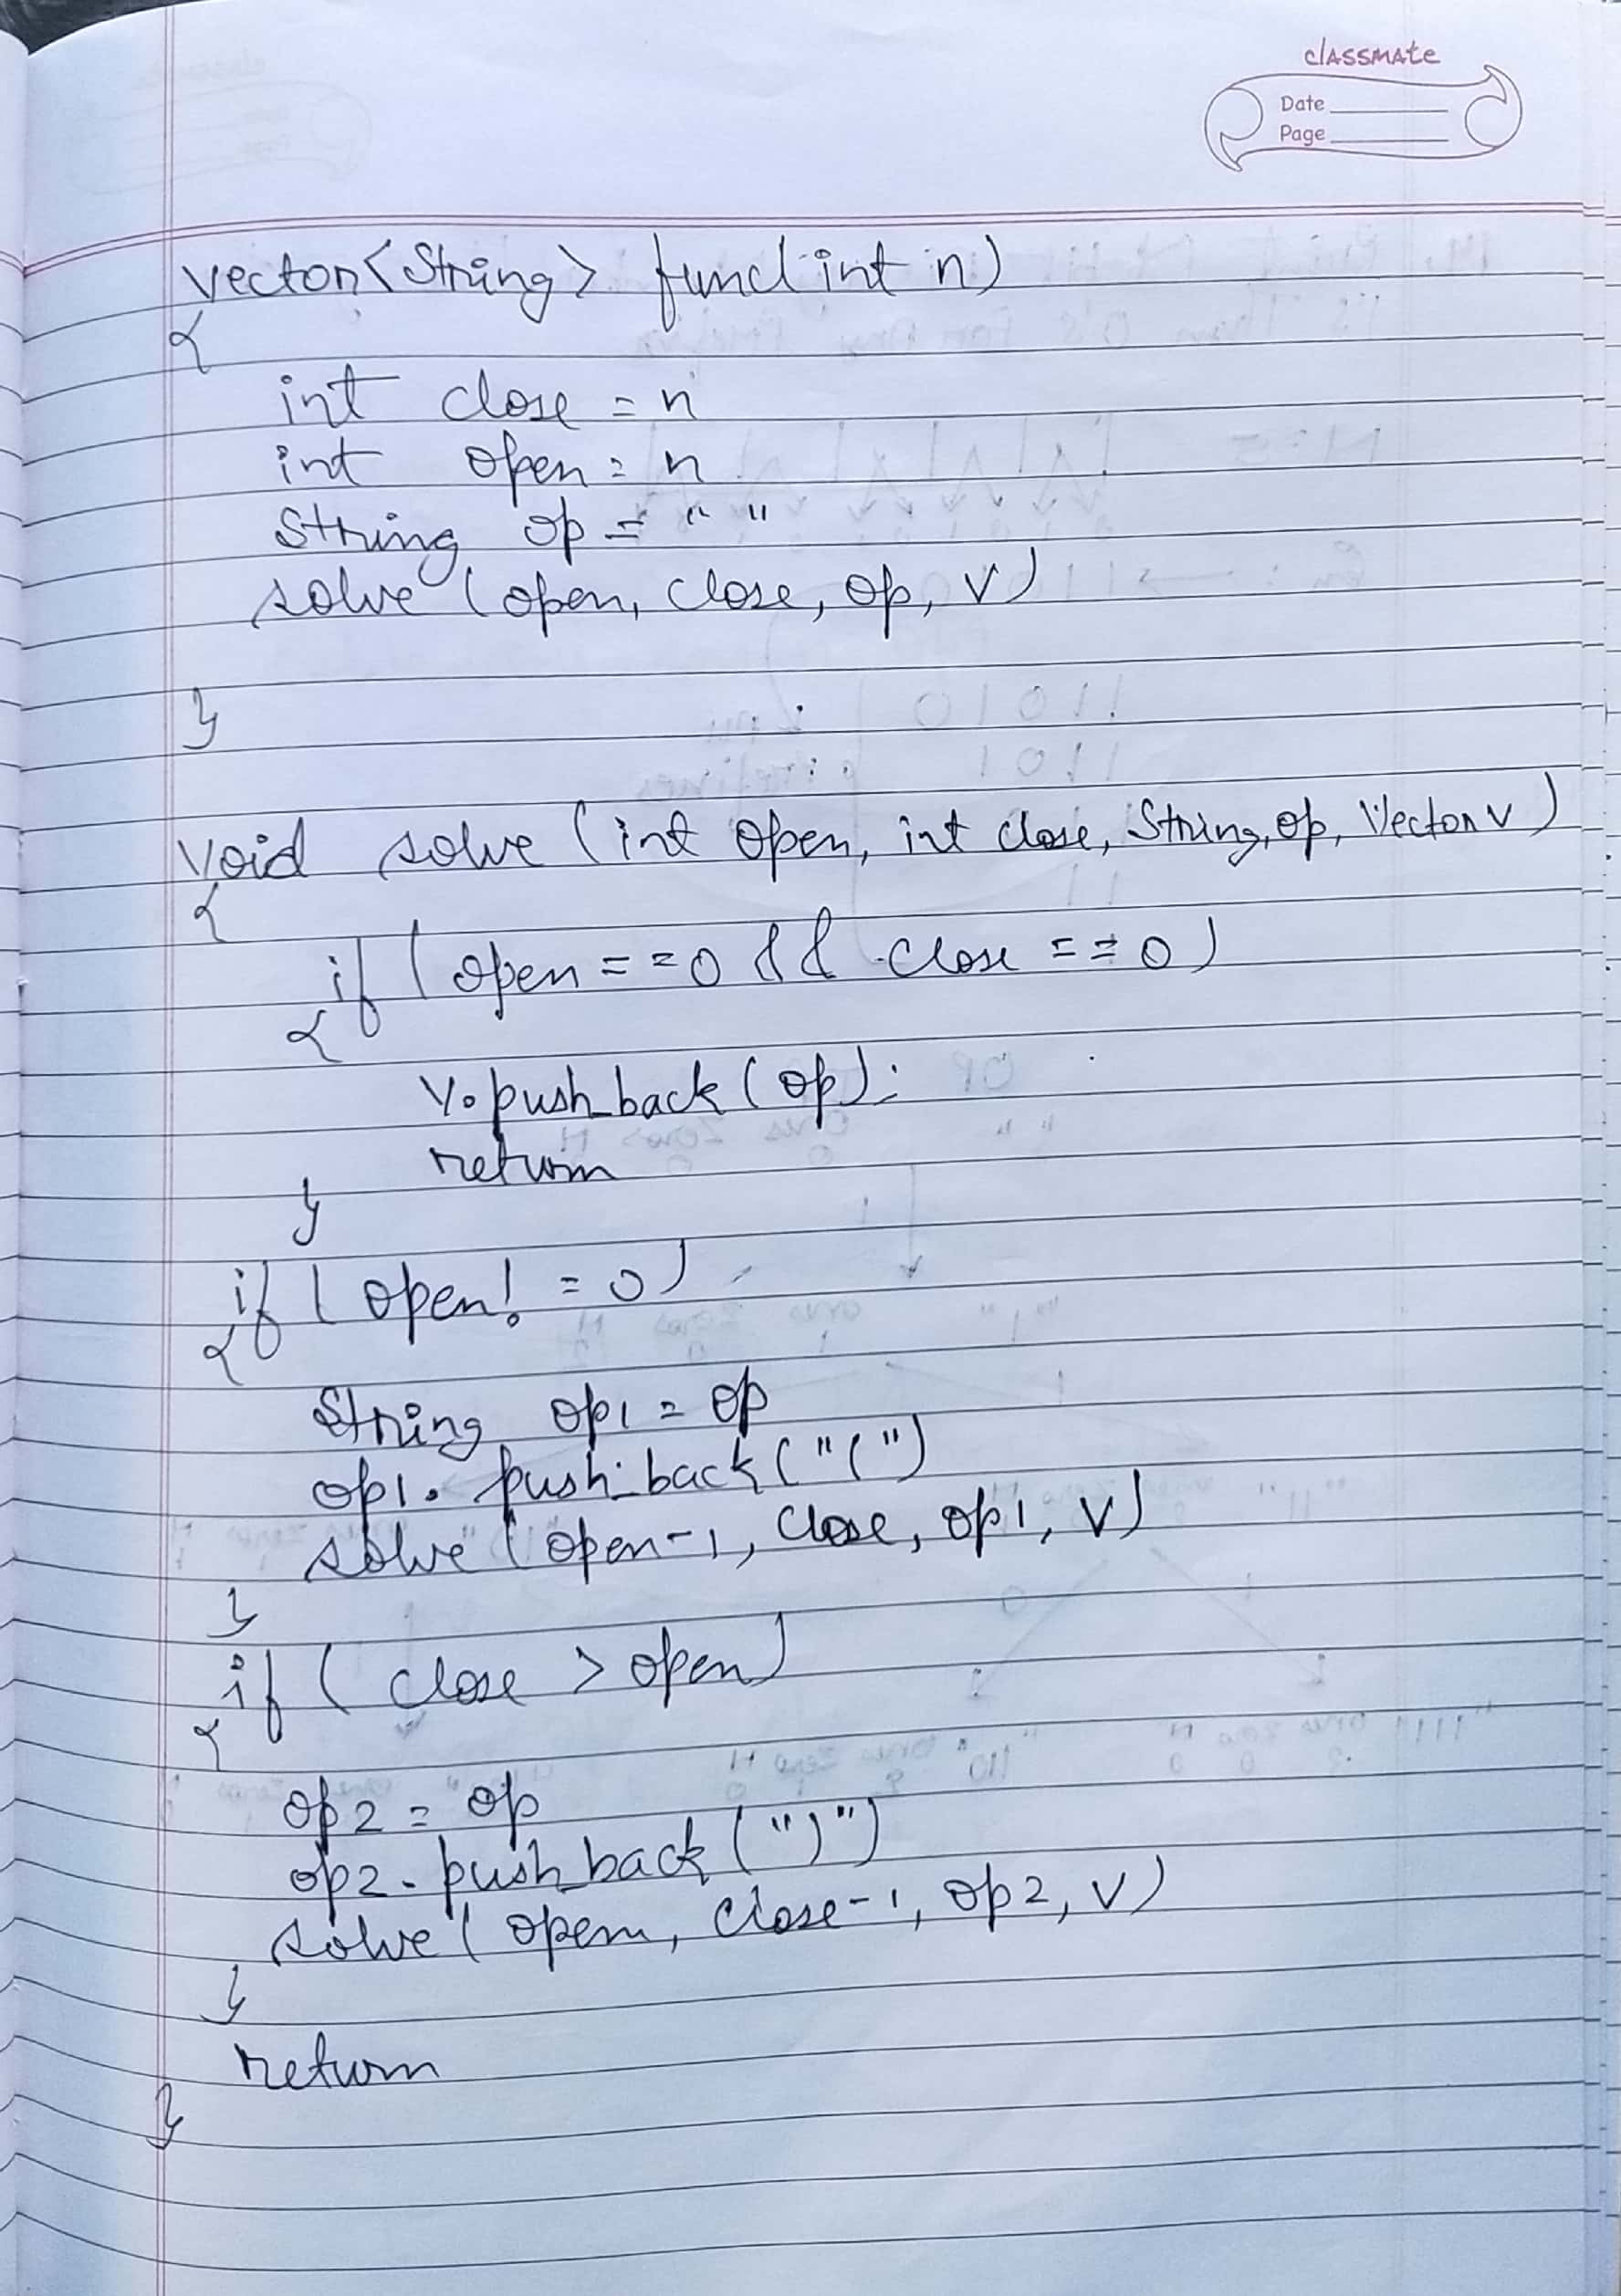 classmate
Date
Page
vector<String> func(int n)
{
int close = n
int open = n
String op = " "
solve (open, close, op, v)
}
void solve (int open, int close, String, op, Vector v)
{
if (open == 0 && close == 0)
{
v.push_back (op);
return
}
if (open! = 0)
{
String op1 = op
op1. push_back ("(")
solve (open-1, close, op1, v)
}
if (close > open)
{
op2 = op
op2. push_back (")")
solve (open, close-1, op2, v)
}
return
}